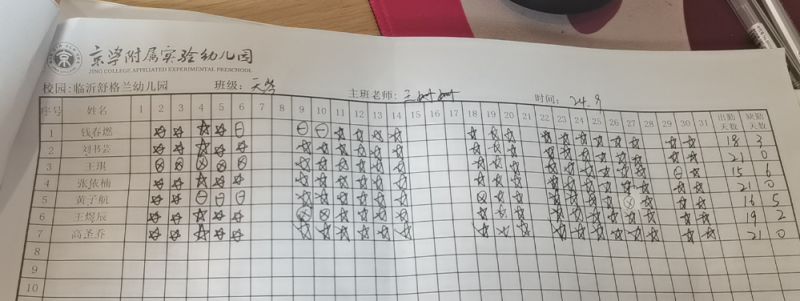 京学附属实验幼儿园
JING COLLEGE AFFILIATED EXPERIMENTAL PRESCHOOL
校园:临沂舒格兰幼儿园 班级: 主班老师: 时间: 24.9
序号 姓名 1 2 3 4 5 6 7 8 9 10 11 12 13 14 15 16 17 18 19 20 21 22 23 24 25 26 27 28 29 30 31 出勤天数 缺勤天数
1 钱春燃 ☆ ☆ ☆ ☆ ⊖ ⊖ ⊖ ☆ ☆ ☆ ☆ ☆ ☆ ☆ ☆ ☆ ☆ ☆ ☆ ☆ ☆ 18 3
2 刘书芸 ☆ ☆ ☆ ☆ ☆ ☆ ☆ ☆ ☆ ☆ ☆ ☆ ☆ ☆ ☆ ☆ ☆ ☆ ☆ ☆ ☆ 21 0
3 王琪 ⊗ ⊗ ⊗ ⊗ ⊗ ☆ ☆ ☆ ☆ ☆ ☆ ☆ ☆ ☆ ☆ ☆ ☆ ☆ ☆ ⊖ ☆ 15 6
4 张依楠 ☆ ☆ ☆ ☆ ☆ ☆ ☆ ☆ ☆ ☆ ☆ ☆ ☆ ☆ ☆ ☆ ☆ ☆ ☆ ☆ ☆ 21 0
5 黄子航 ☆ ☆ ⊖ ⊖ ⊖ ☆ ☆ ☆ ☆ ☆ ☆ ⊗ ☆ ☆ ☆ ☆ ☆ ☆ ⊗ ☆ ☆ 16 5
6 王煜辰 ☆ ☆ ☆ ☆ ☆ ⊗ ⊗ ☆ ☆ ☆ ☆ ☆ ☆ ☆ ☆ ☆ ☆ ☆ ☆ ☆ ☆ 19 2
7 高圣乔 ☆ ☆ ☆ ☆ ☆ ☆ ☆ ☆ ☆ ☆ ☆ ☆ ☆ ☆ ☆ ☆ ☆ ☆ ☆ ☆ ☆ 21 0
8
9
10